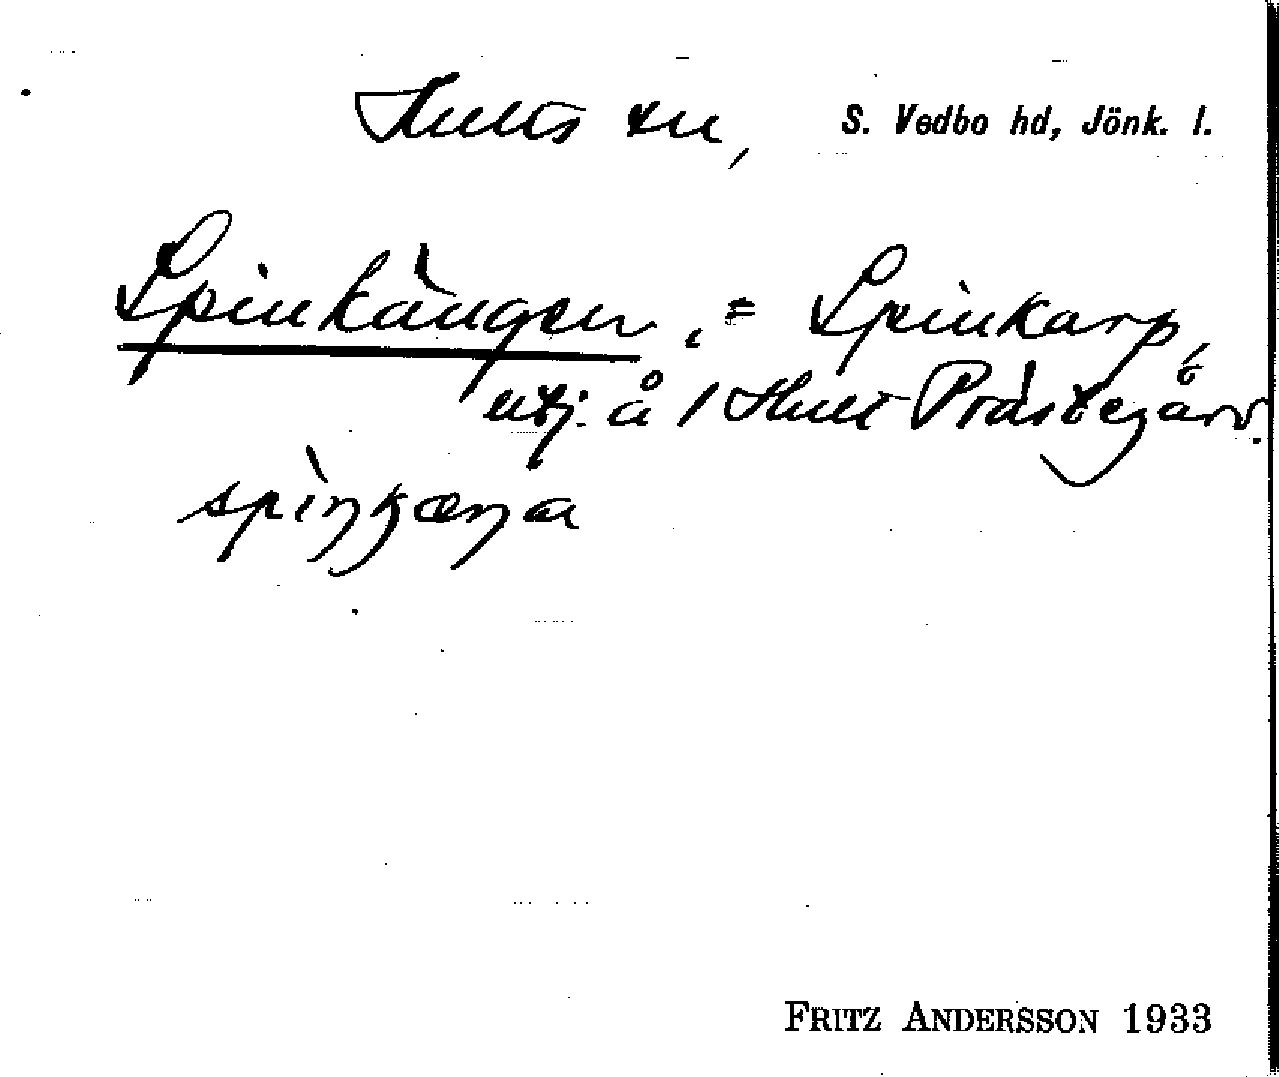 Hults sn, S. Vedbo hd, Jönk. l.
Spinkängen, = Spinkarp,
utj. å / Hult Prästegård.
spiŋkæŋa
FRITZ ANDERSSON 1933